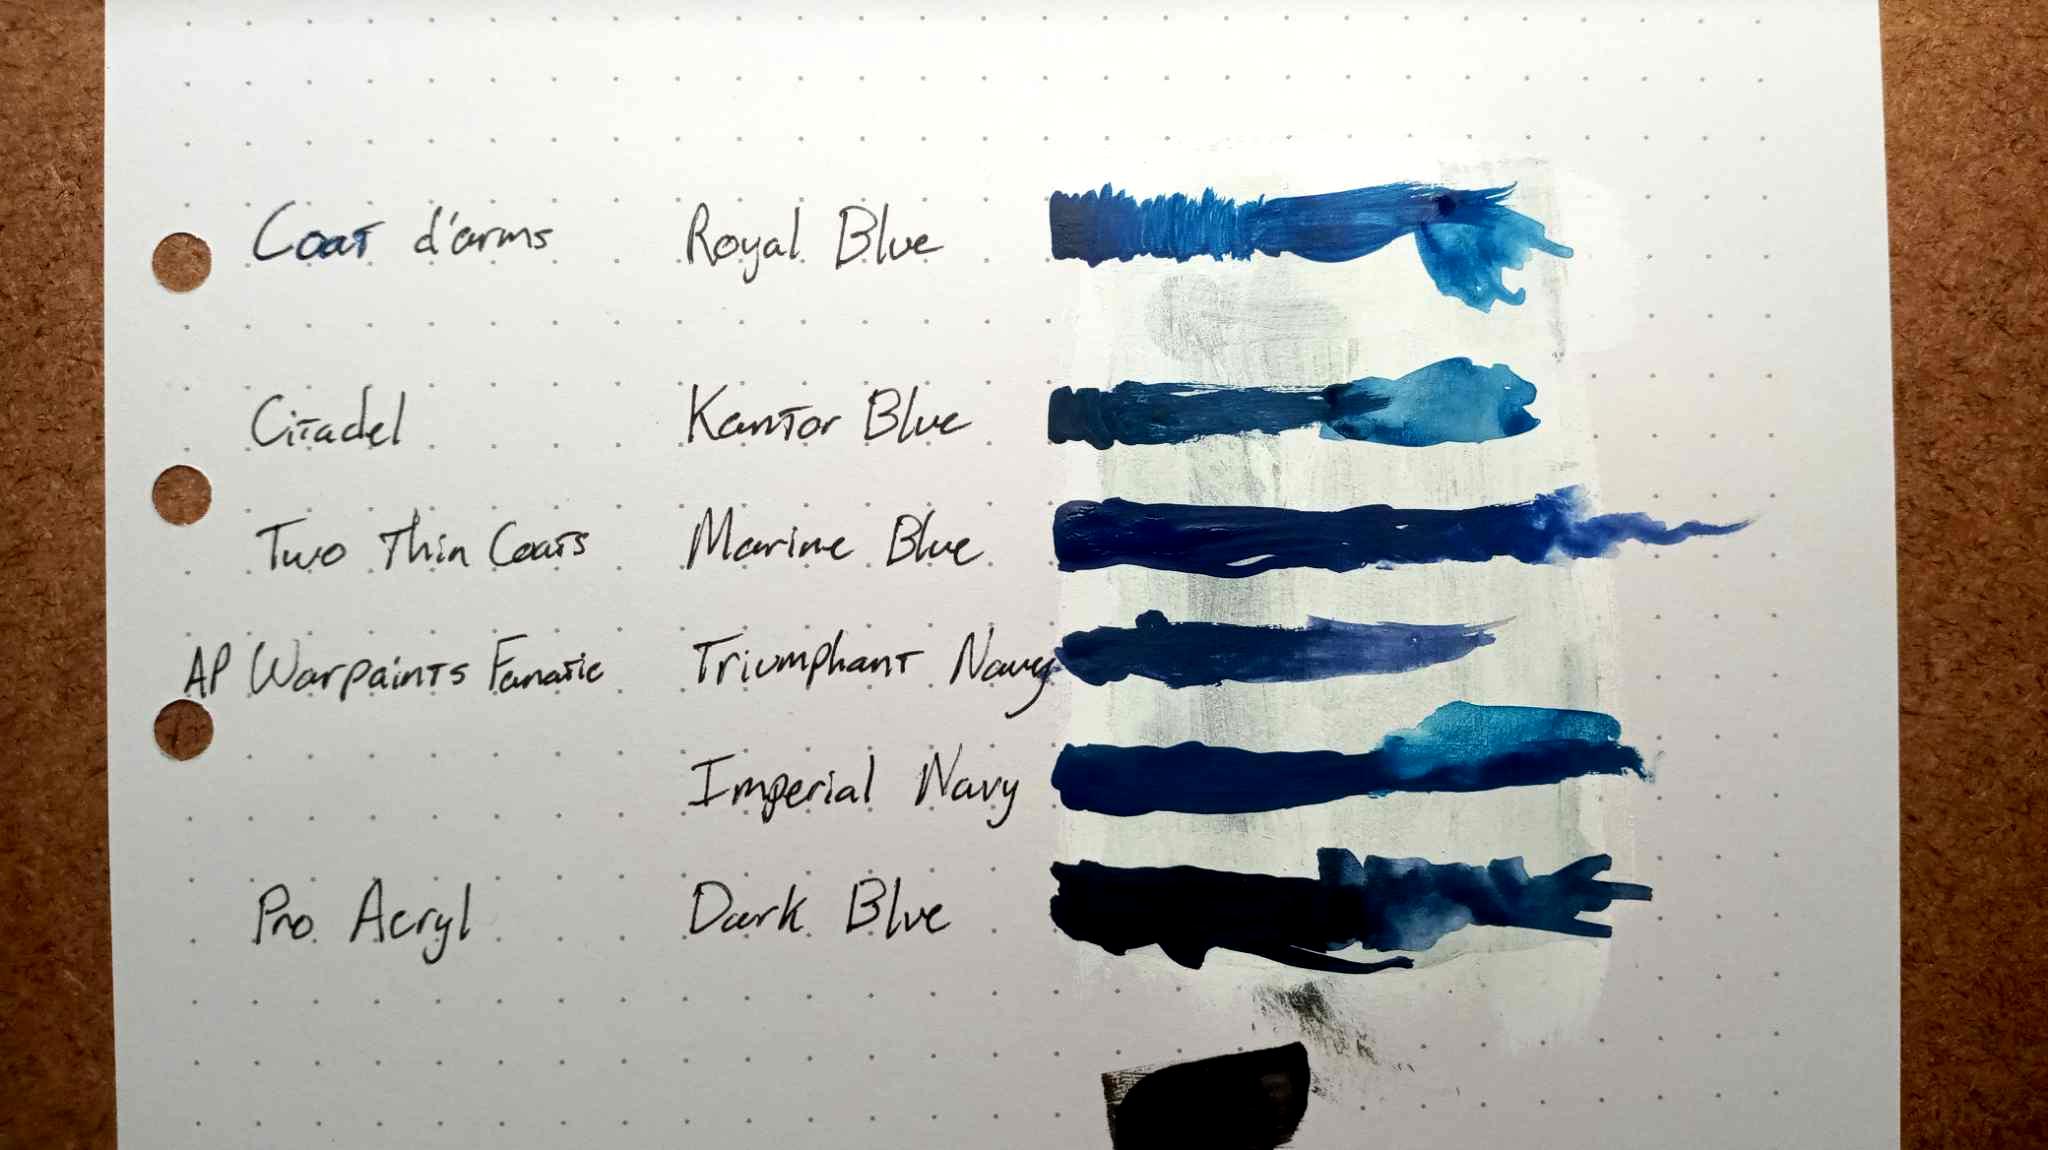 Coat d'arms Royal Blue
Citadel Kantor Blue
Two Thin Coats Marine Blue
AP Warpaints Fanatic Triumphant Navy
Imperial Navy
Pro Acryl Dark Blue